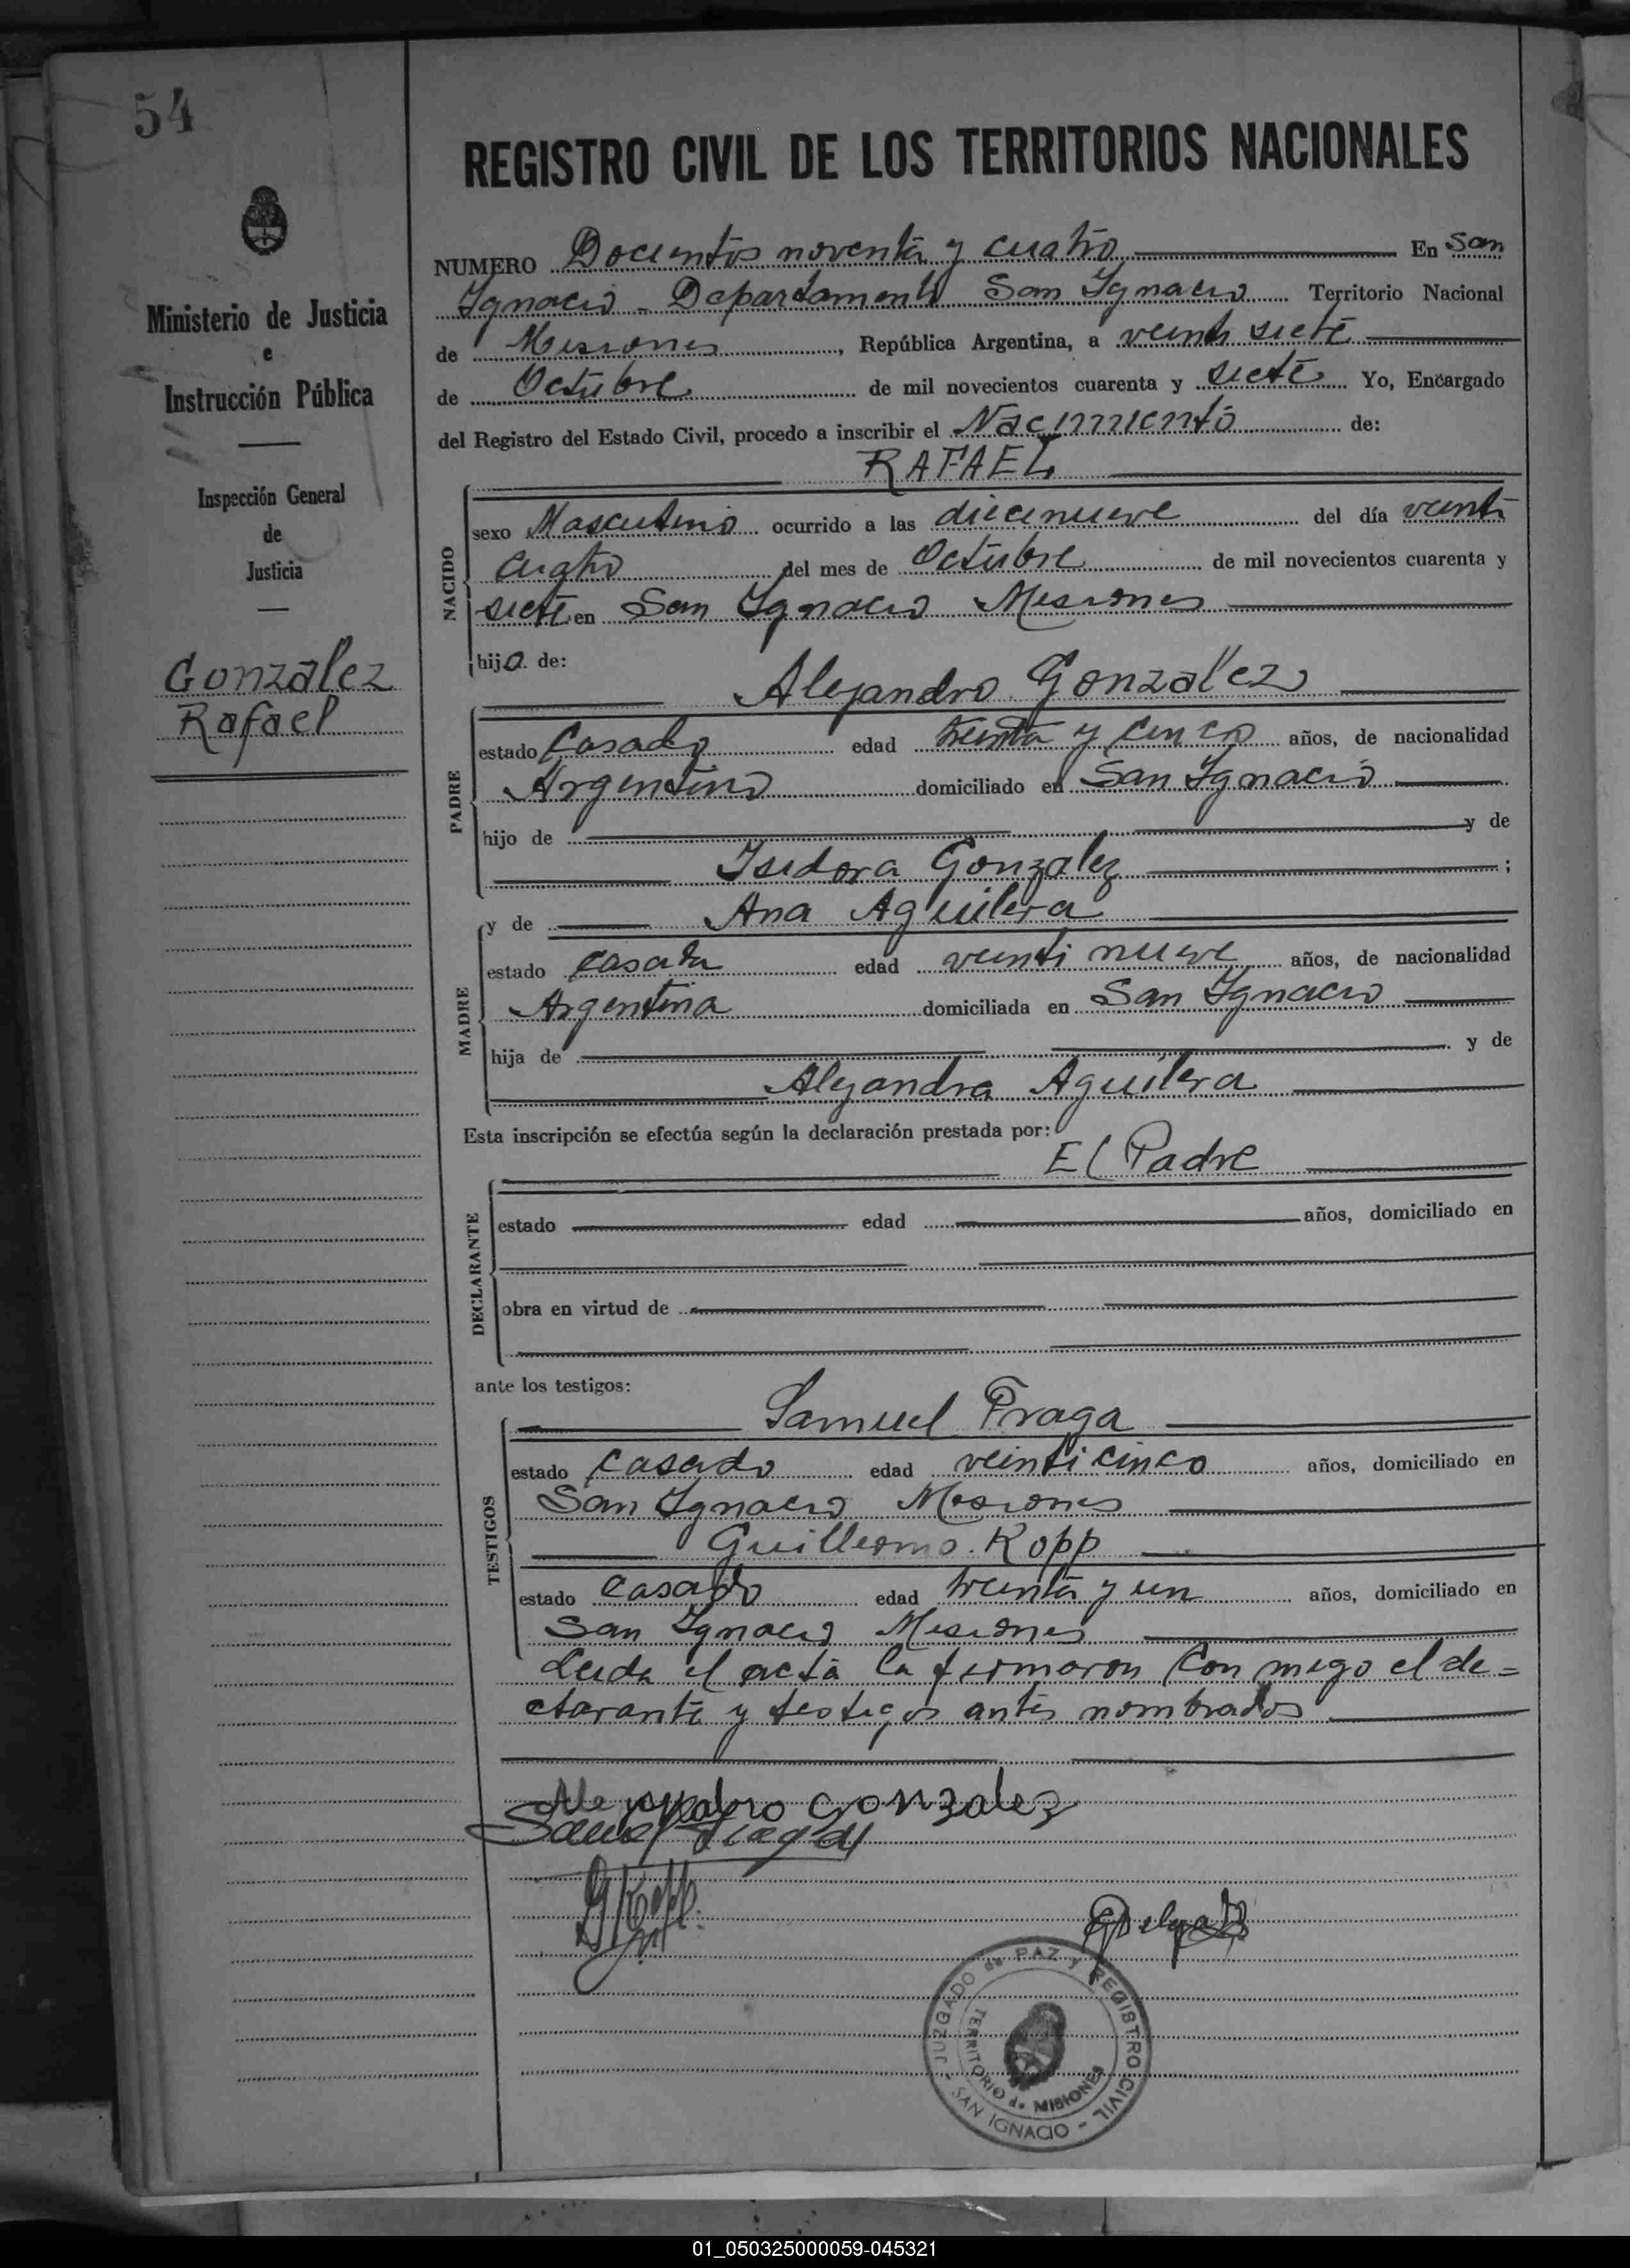 54
Ministerio de Justicia
e
Instrucción Pública
Inspección General
de
Justicia
Gonzalez
Rafael
REGISTRO CIVIL DE LOS TERRITORIOS NACIONALES
NUMERO Docientos noventa y cuatro En San
Ignacio - Departamento San Ignacio Territorio Nacional
de Misiones, República Argentina, a veinti siete
de Octubre de mil novecientos cuarenta y siete Yo, Encargado
del Registro del Estado Civil, procedo a inscribir el Nacimiento de:
RAFAEL
NACIDO
sexo Masculino ocurrido a las diecinueve del día veinti
cuatro del mes de Octubre de mil novecientos cuarenta y
siete en San Ignacio Misiones
hijo. de:
Alejandro Gonzalez
PADRE
estado Casado edad treinta y cinco años, de nacionalidad
Argentino domiciliado en San Ignacio
hijo de y de
Isidora Gonzalez ;
MADRE
y de Ana Aguilera
estado casada edad veinti nueve años, de nacionalidad
Argentina domiciliada en San Ignacio
hija de y de
Alejandra Aguilera
Esta inscripción se efectúa según la declaración prestada por:
El Padre
DECLARANTE
estado edad años, domiciliado en
obra en virtud de
ante los testigos:
Samuel Fraga
TESTIGOS
estado casado edad veinticinco años, domiciliado en
San Ignacio Misiones
Guillermo Kopp
estado casado edad treinta y un años, domiciliado en
San Ignacio Misiones
Leida el acta la firmaron con migo el de=
clarante y testigos antes nombrados
Alejandro Gonzalez
Samuel Fraga
G Kopp
JUZGADO de PAZ y REGISTRO CIVIL - SAN IGNACIO -
TERRITORIO de MISIONES
01_050325000059-045321